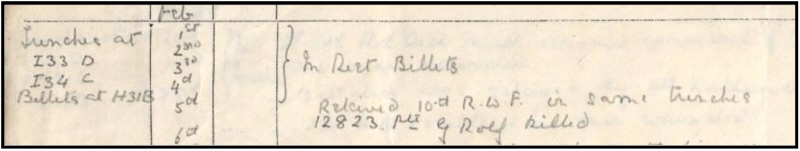 Feb
Trenches at 1st
I33 D 2nd
I34 C 3rd In Rest Billets
Billets at H31B 4d
5d Relieved 10th R.W.F. in same trenches
6d 12823 Pte G Rolf killed